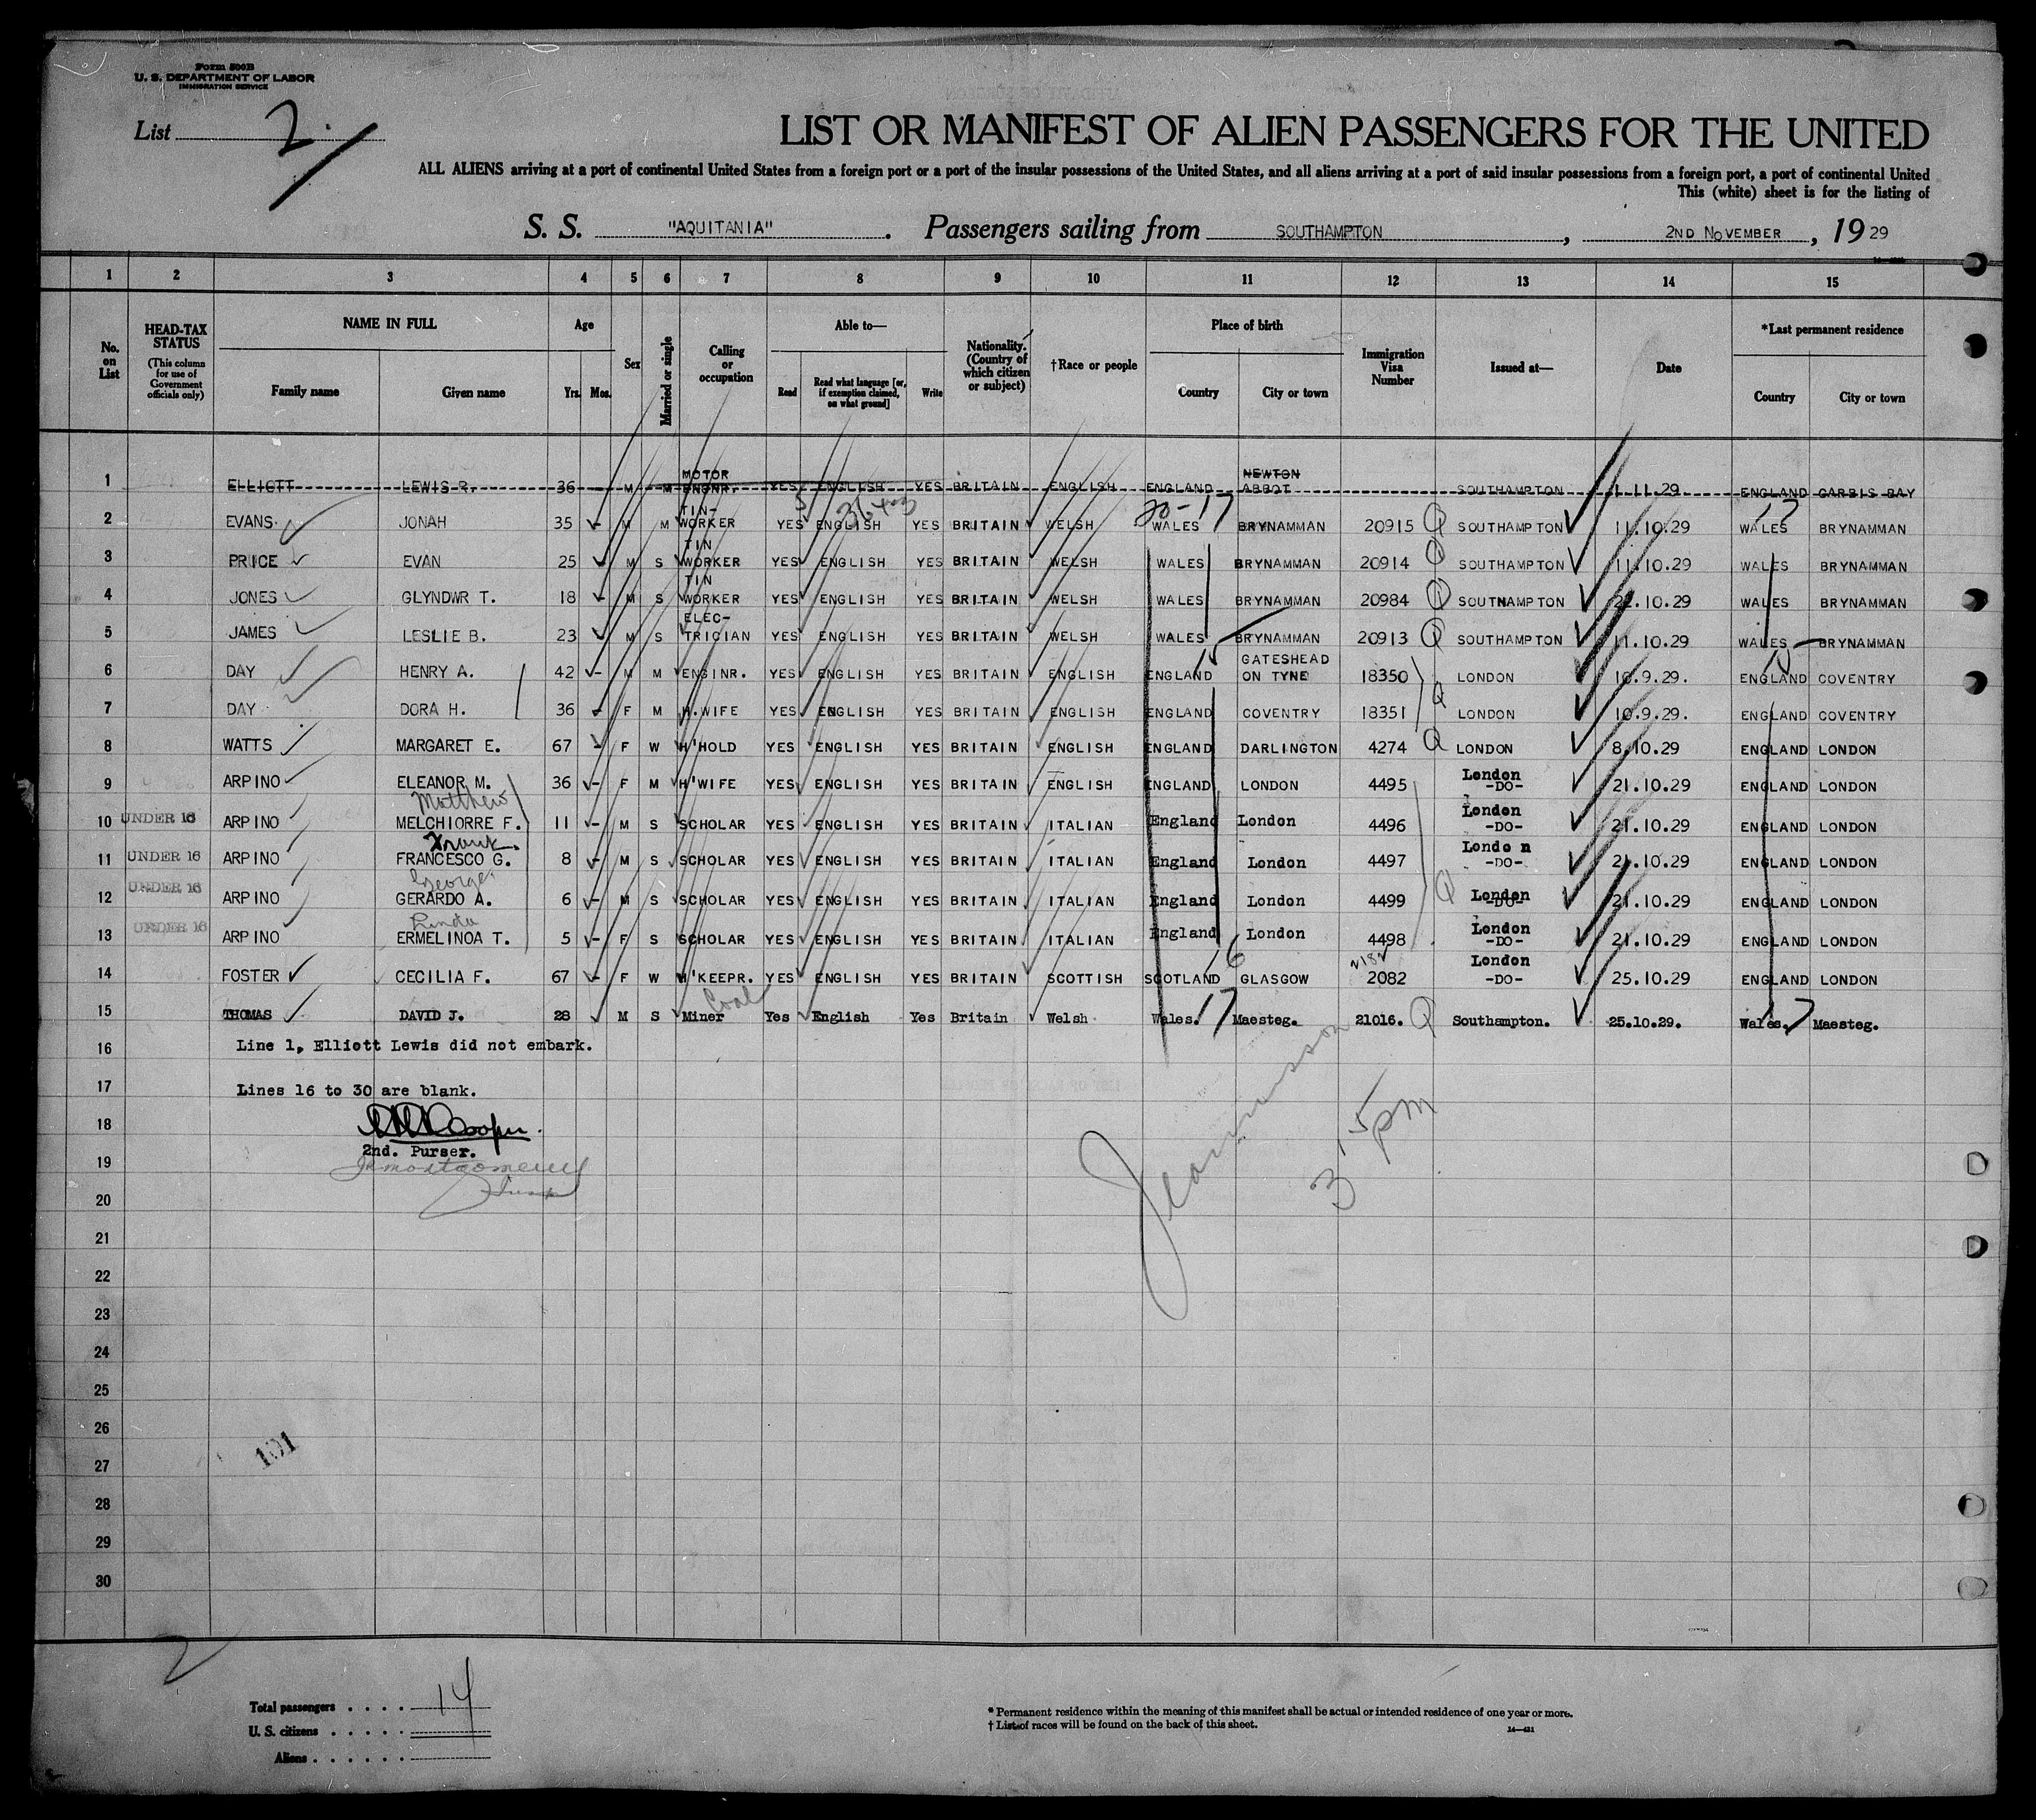 Form 500B
U. S. DEPARTMENT OF LABOR
IMMIGRATION SERVICE
List 2
LIST OR MANIFEST OF ALIEN PASSENGERS FOR THE UNITED
ALL ALIENS arriving at a port of continental United States from a foreign port or a port of the insular possessions of the United States, and all aliens arriving at a port of said insular possessions from a foreign port, a port of continental United
This (white) sheet is for the listing of
S. S. "AQUITANIA". Passengers sailing from SOUTHAMPTON, 2ND NOVEMBER, 1929
1 2 3 4 5 6 7 8 9 10 11 12 13 14 15
No. on List
HEAD-TAX STATUS (This column for use of Government officials only)
NAME IN FULL
Family name Given name
Age
Yrs. Mos.
Sex
Married or single
Calling or occupation
Able to—
Read Read what language [or, if exemption claimed, on what ground] Write
Nationality. (Country of which citizen or subject)
†Race or people
Place of birth
Country City or town
Immigration Visa Number
Issued at—
Date
*Last permanent residence
Country City or town
1 ELLIOTT LEWIS R. 36 - M M MOTOR ENGNR. YES ENGLISH YES BRITAIN ENGLISH ENGLAND NEWTON ABBOT SOUTHAMPTON 1.11.29 ENGLAND CARBIS BAY
2 EVANS. JONAH 35 - M M TIN-WORKER YES ENGLISH YES BRITAIN WELSH WALES BRYNAMMAN 20915 SOUTHAMPTON 11.10.29 WALES BRYNAMMAN
3 PRICE EVAN 25 - M S TIN WORKER YES ENGLISH YES BRITAIN WELSH WALES BRYNAMMAN 20914 SOUTHAMPTON 11.10.29 WALES BRYNAMMAN
4 JONES GLYNDWR T. 18 - M S TIN WORKER YES ENGLISH YES BRITAIN WELSH WALES BRYNAMMAN 20984 SOUTHAMPTON 22.10.29 WALES BRYNAMMAN
5 JAMES LESLIE B. 23 - M S ELEC-TRICIAN YES ENGLISH YES BRITAIN WELSH WALES BRYNAMMAN 20913 SOUTHAMPTON 11.10.29 WALES BRYNAMMAN
6 DAY HENRY A. 42 - M M ENGINR. YES ENGLISH YES BRITAIN ENGLISH ENGLAND GATESHEAD ON TYNE 18350 LONDON 10.9.29. ENGLAND COVENTRY
7 DAY DORA H. 36 - F M H.WIFE YES ENGLISH YES BRITAIN ENGLISH ENGLAND COVENTRY 18351 LONDON 10.9.29. ENGLAND COVENTRY
8 WATTS MARGARET E. 67 - F W H'HOLD YES ENGLISH YES BRITAIN ENGLISH ENGLAND DARLINGTON 4274 LONDON 8.10.29 ENGLAND LONDON
9 ARPINO ELEANOR M. 36 - F M H'WIFE YES ENGLISH YES BRITAIN ENGLISH ENGLAND LONDON 4495 London -DO- 21.10.29 ENGLAND LONDON
Matthew
10 UNDER 16 ARPINO MELCHIORRE F. 11 - M S SCHOLAR YES ENGLISH YES BRITAIN ITALIAN England London 4496 London -DO- 21.10.29 ENGLAND LONDON
Frank.
11 UNDER 16 ARPINO FRANCESCO G. 8 - M S SCHOLAR YES ENGLISH YES BRITAIN ITALIAN England London 4497 London -DO- 21.10.29 ENGLAND LONDON
George
12 UNDER 16 ARPINO GERARDO A. 6 - M S SCHOLAR YES ENGLISH YES BRITAIN ITALIAN England London 4499 London -DO- 21.10.29 ENGLAND LONDON
Linda
13 UNDER 16 ARPINO ERMELINOA T. 5 - F S SCHOLAR YES ENGLISH YES BRITAIN ITALIAN England London 4498 London -DO- 21.10.29 ENGLAND LONDON
14 FOSTER CECILIA F. 67 - F W H'KEEPR. YES ENGLISH YES BRITAIN SCOTTISH SCOTLAND GLASGOW 2082 London -DO- 25.10.29 ENGLAND LONDON
Coal
15 THOMAS DAVID J. 28 M S Miner Yes English Yes Britain Welsh Wales. Maesteg. 21016. Southampton. 25.10.29. Wales. Maesteg.
16 Line 1, Elliott Lewis did not embark.
17 Lines 16 to 30 are blank.
18
2nd. Purser.
19
20
21
22
23
24
25
26
27
28
29
30
3 15 pm
101
2
Total passengers . . . . 14
U. S. citizens . . . . .
Aliens . . . . . .
* Permanent residence within the meaning of this manifest shall be actual or intended residence of one year or more.
† List of races will be found on the back of this sheet.